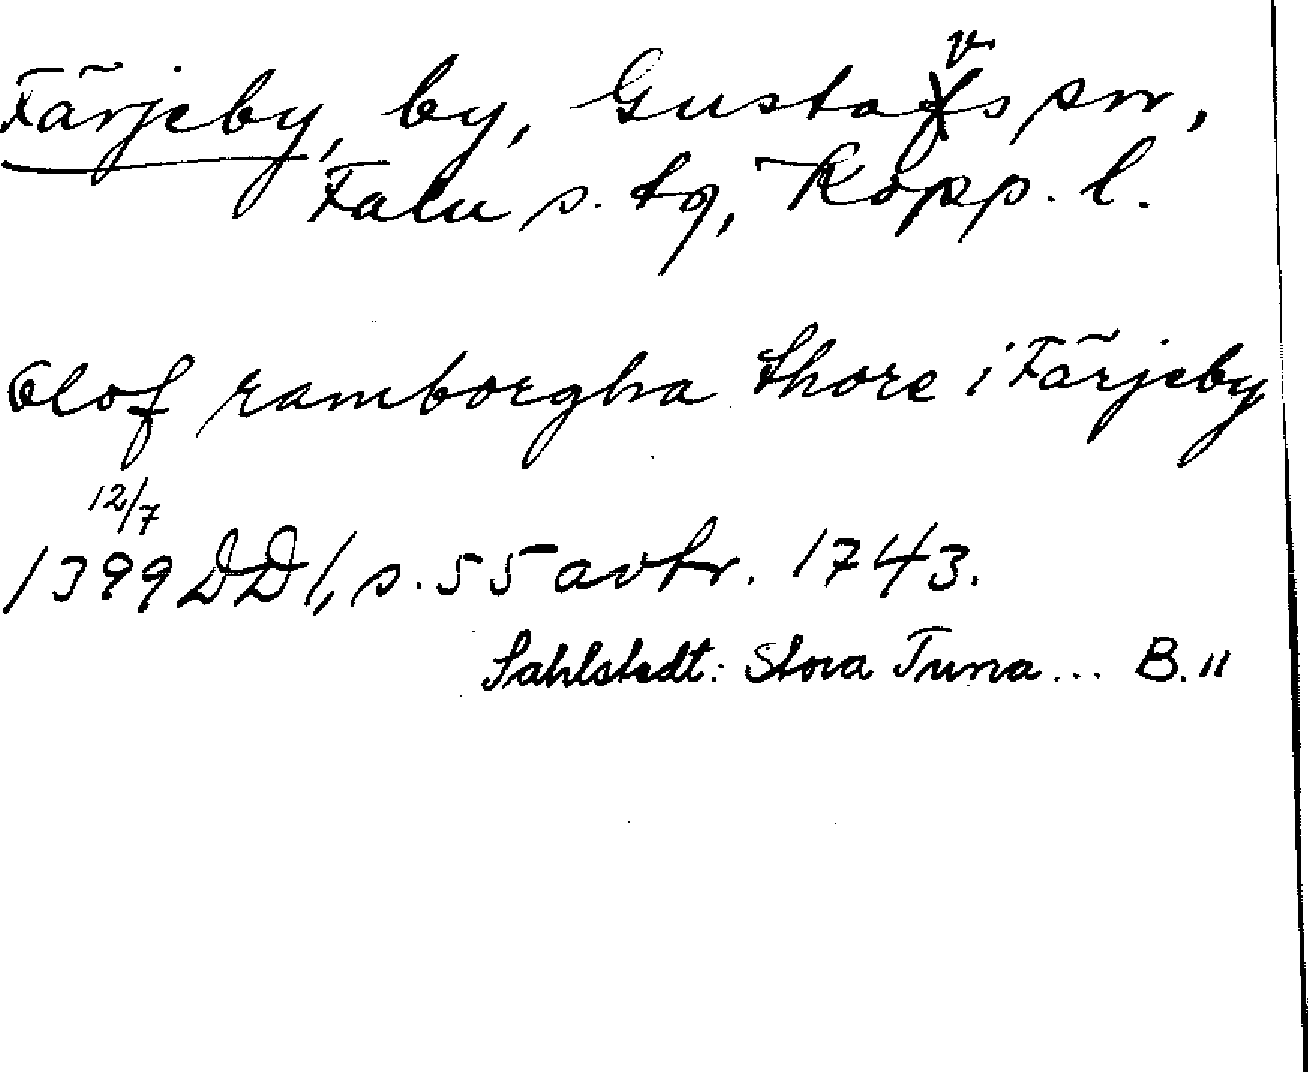 Färjeby, by, Gustavs sn,
Falu s. tg, Kopp. l.
Olof ramborgha Thore i Färjeby
12/7
1399 DD 1, s. 55 avtr. 1743.
Sahlstedt: Stora Tuna... B. 11